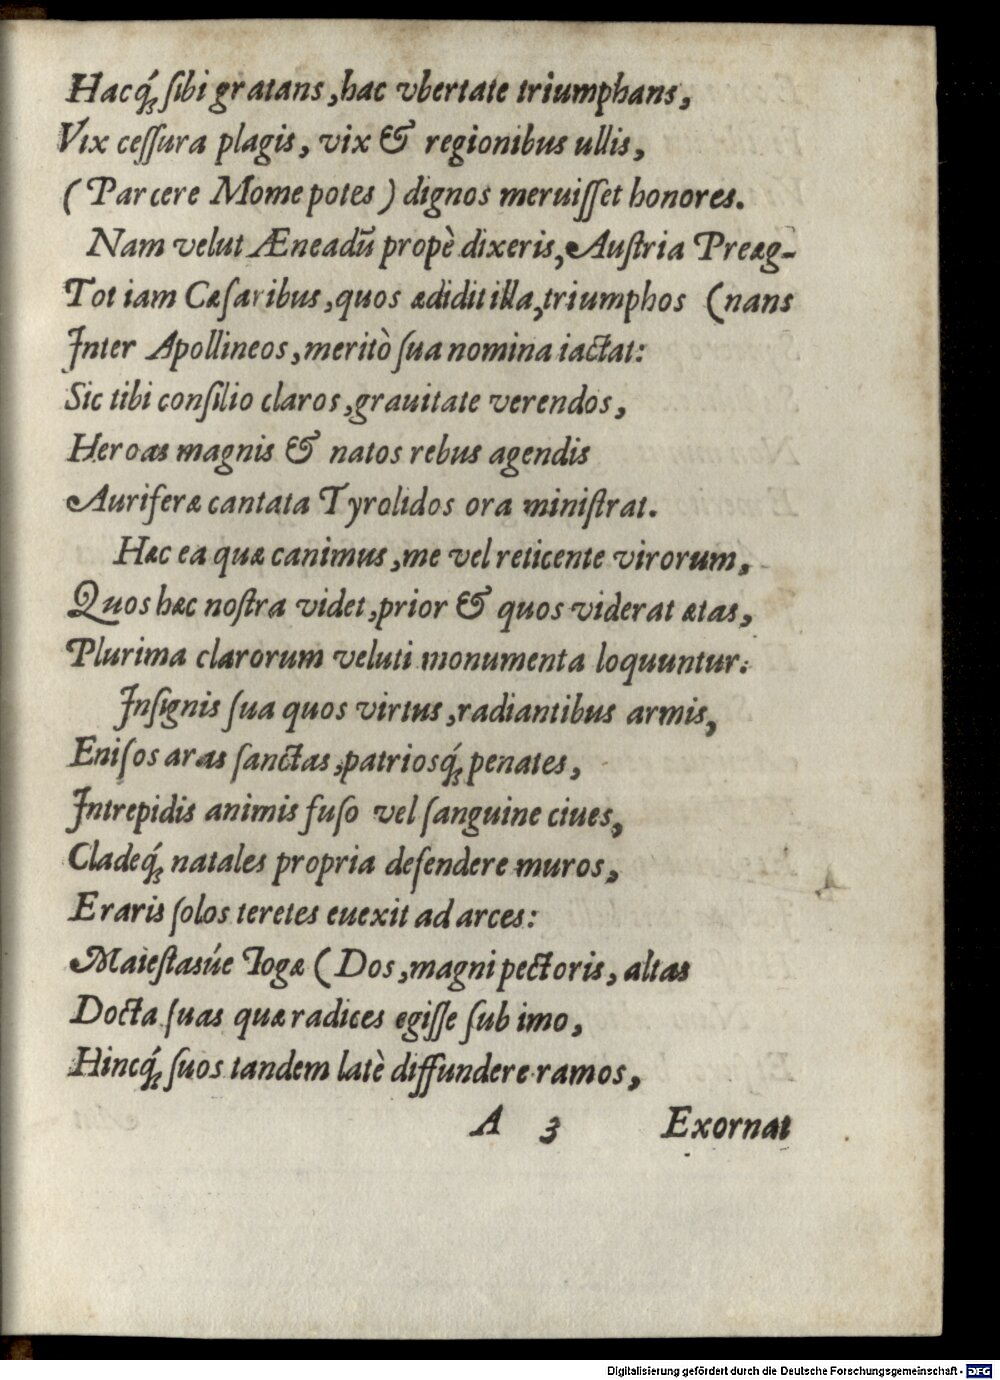 Hacq́ꝫ ſibi gratans, hac vbertate triumphans,
Vix ceſſura plagis, vix & regionibus ullis,
(Parcere Mome potes) dignos meruiſſet honores.
Nam velut Æneadũ propè dixeris, Auſtria Præg-
Tot iam Cæſaribus, quos ædidit illa, triumphos (nans
Inter Apollineos, meritò ſua nomina iactat:
Sic tibi conſilio claros, grauitate verendos,
Heroas magnis & natos rebus agendis
Auriferæ cantata Tyrolidos ora miniſtrat.
Hæc ea quæ canimus, me vel reticente virorum,
Quos hæc noſtra videt, prior & quos viderat ætas,
Plurima clarorum veluti monumenta loquuntur.
Inſignis ſua quos virtus, radiantibus armis,
Eniſos aras ſanctas, patriosq́ꝫ penates,
Intrepidis animis fuſo vel ſanguine ciues,
Cladeq́ꝫ natales propria defendere muros,
Eraris ſolos teretes euexit ad arces:
Maieſtasúe Togæ (Dos, magni pectoris, altas
Docta ſuas quæ radices egiſſe ſub imo,
Hincq́ꝫ ſuos tandem latè diffundere ramos,
A 3 Exornat
Digitalisierung gefördert durch die Deutsche Forschungsgemeinschaft - DFG